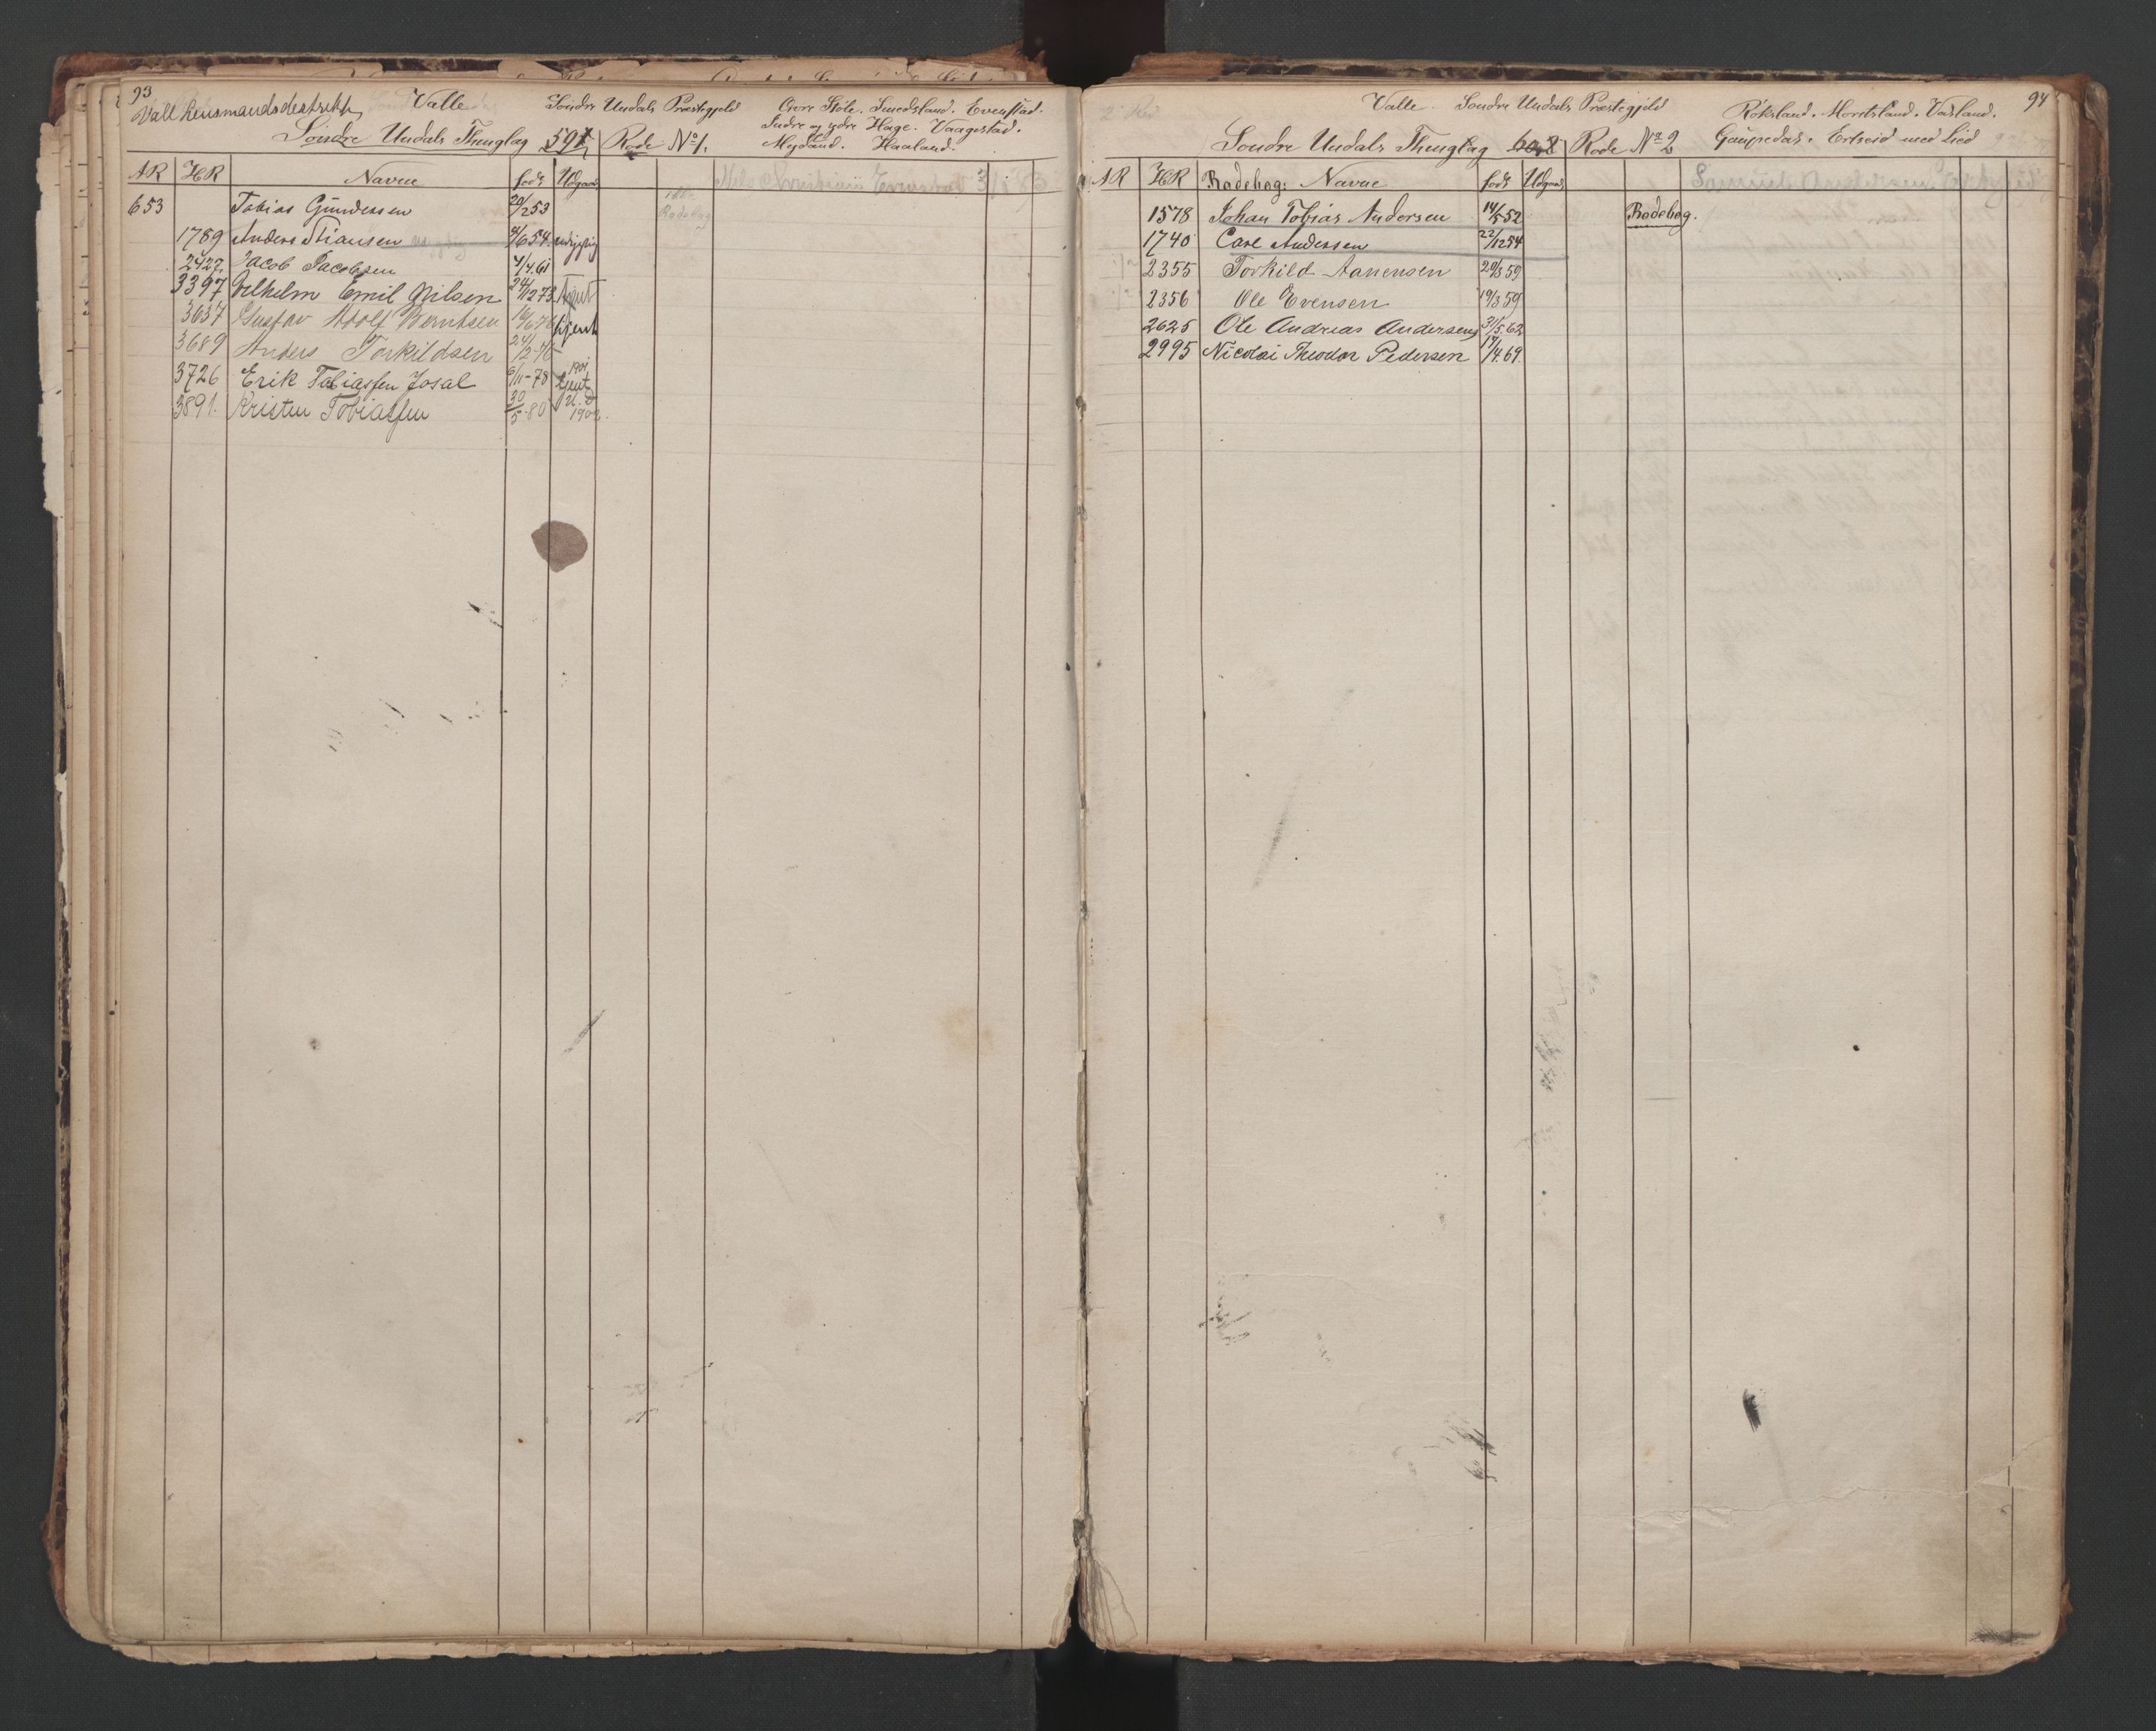 93
Vall lensmandsdestrikt Valle Søndre Undals Præstegjeld Smedsland. Evenstad.
Indre og ydre Hage. Vaagestad.
Søndre Undals Thinglag 591 Rode No 1. Mydland. Haaland.
AR HR Navne født Udgaaet
653 Tobias Gundersen 20/2 53
1789 Anders Stiansen 4/6 54.
2427. Jacob Jacobsen 4/4.61
3397 Vilhelm Emil Nilsen 24/12 73
3637 Gustav Adolf Berntsen
3689 Anders Torkildsen
3726 Erik Tobiassen Josal 6/11-78 1901
3891. Kristen Tobiassen 30/5.80 1902.
Rodebog
94
Valle. Søndre Undals Præstegjeld Røksland. Moritsland. Vasland.
Søndre Undals Thinglag Rode No 2 Gaupedal. Ertseid med Lid
AR HR Rodebog: Navne født Udgaaet
1578 Johan Tobias Andersen 14/5 52 Rodebog.
1740 Carl Andersen 22/12 54
2355 Torkild Aanensen 20/3 59
2356 Ole Evensen 19/3 59
2625 Ole Andreas Andersen 31/5.62
2995 Nicolai Theodor Pedersen 17/4.69.